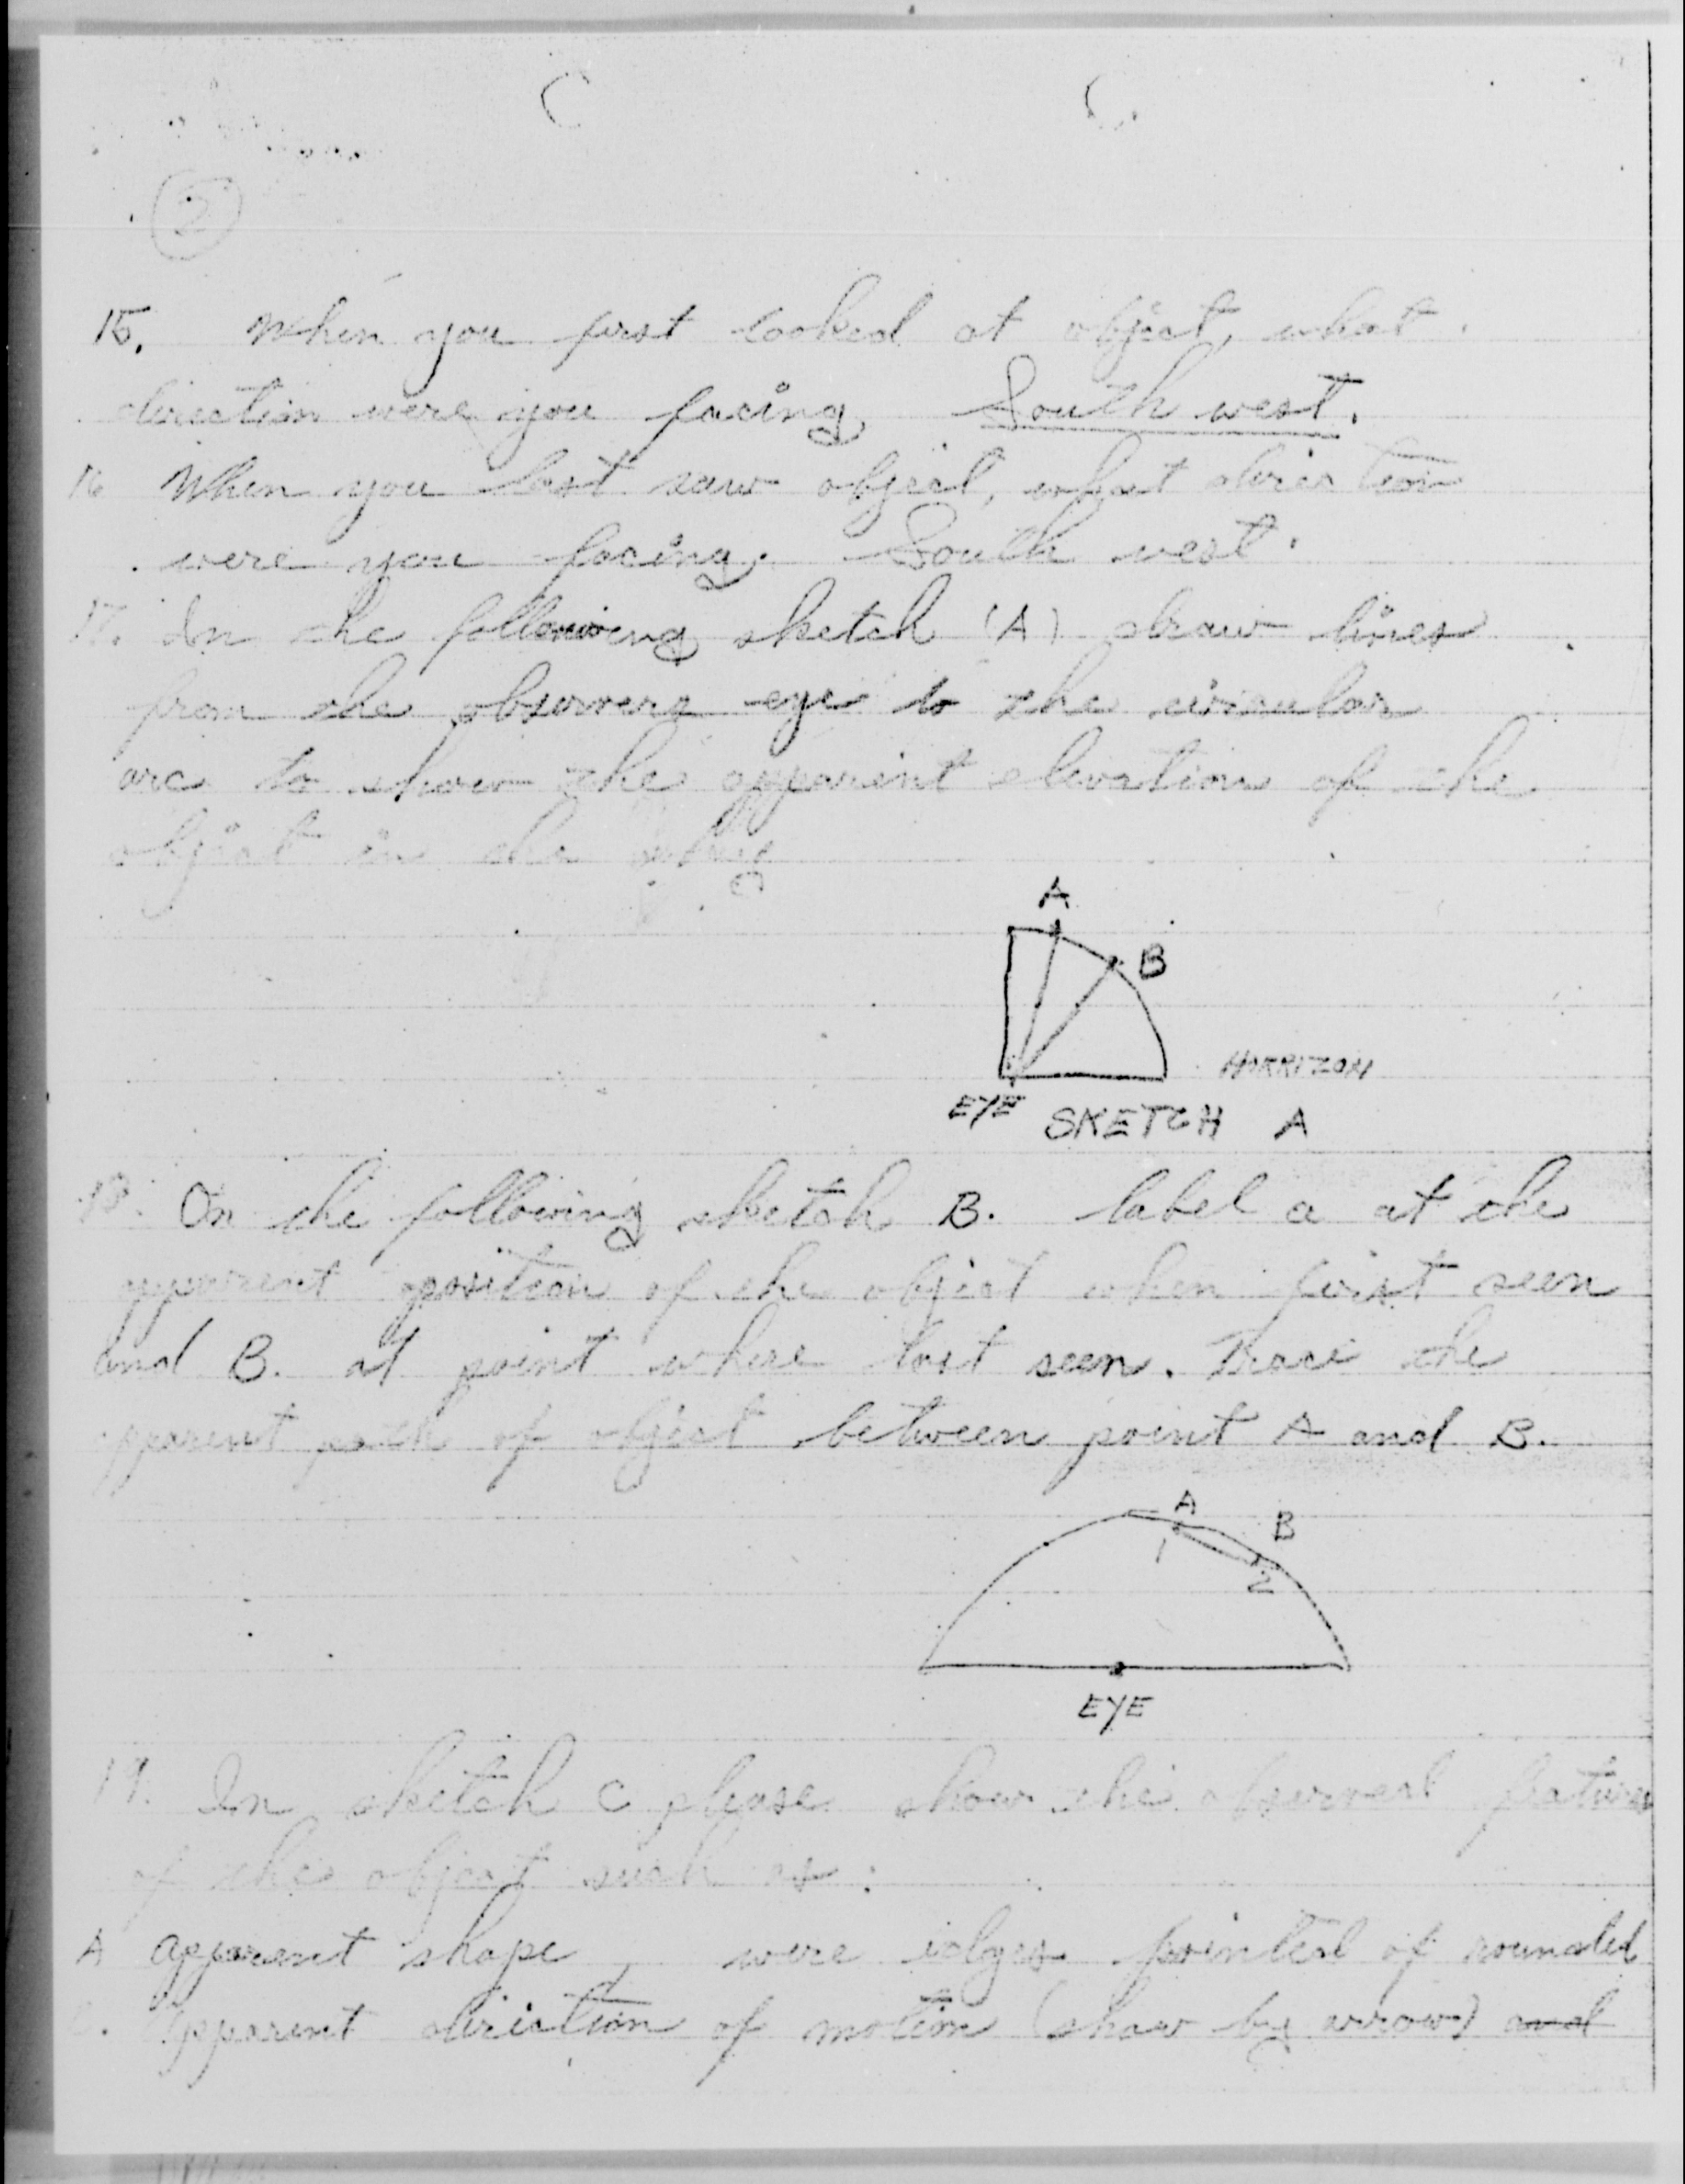 2
15. When you first looked at object, what
direction were you facing South west.
16 When you last saw object, what direction
were you facing. South west.
17. In the following sketch (A) draw lines
from the observers eye to the circular
arc to show the apparent elevation of the
object in the sky
A
B
HORRIZON
EYE
SKETCH A
18. On the following sketch B. label a at the
apparent position of the object when first seen
and B. at point where last seen. Trace the
apparent path of object between point A and B.
A
B
1
2
EYE
19. In sketch C please show the observed features
of the object such as:
A apparent shape, were edges pointed of rounded
apparent direction of motion (show by arrow) and